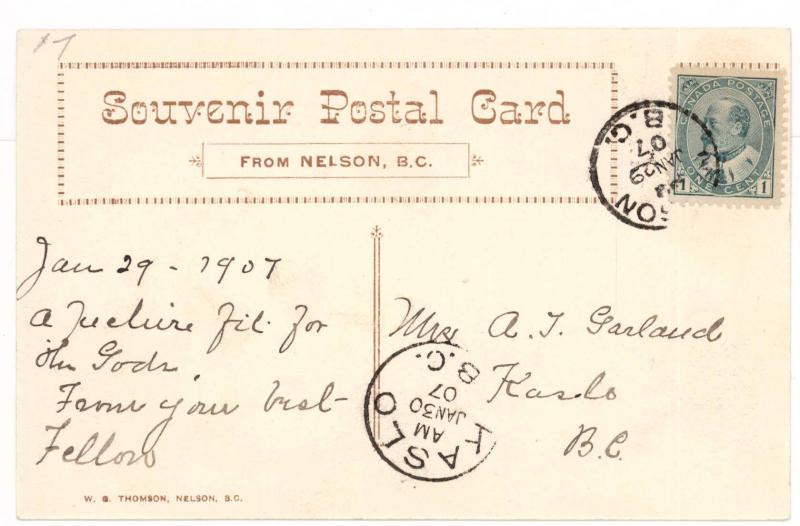 x7
Souvenir Postal Card
FROM NELSON, B.C.
CANADA POSTAGE
1 ONE CENT 1
NELSON B.C.
JAN 29
07
Jan 29 - 1907
A Picture fit for
the Gods
From your best
Fellow
Mrs A. T. Garland
Kaslo
B.C.
KASLO B.C.
AM
JAN 30
07
W. G. THOMSON, NELSON, B.C.